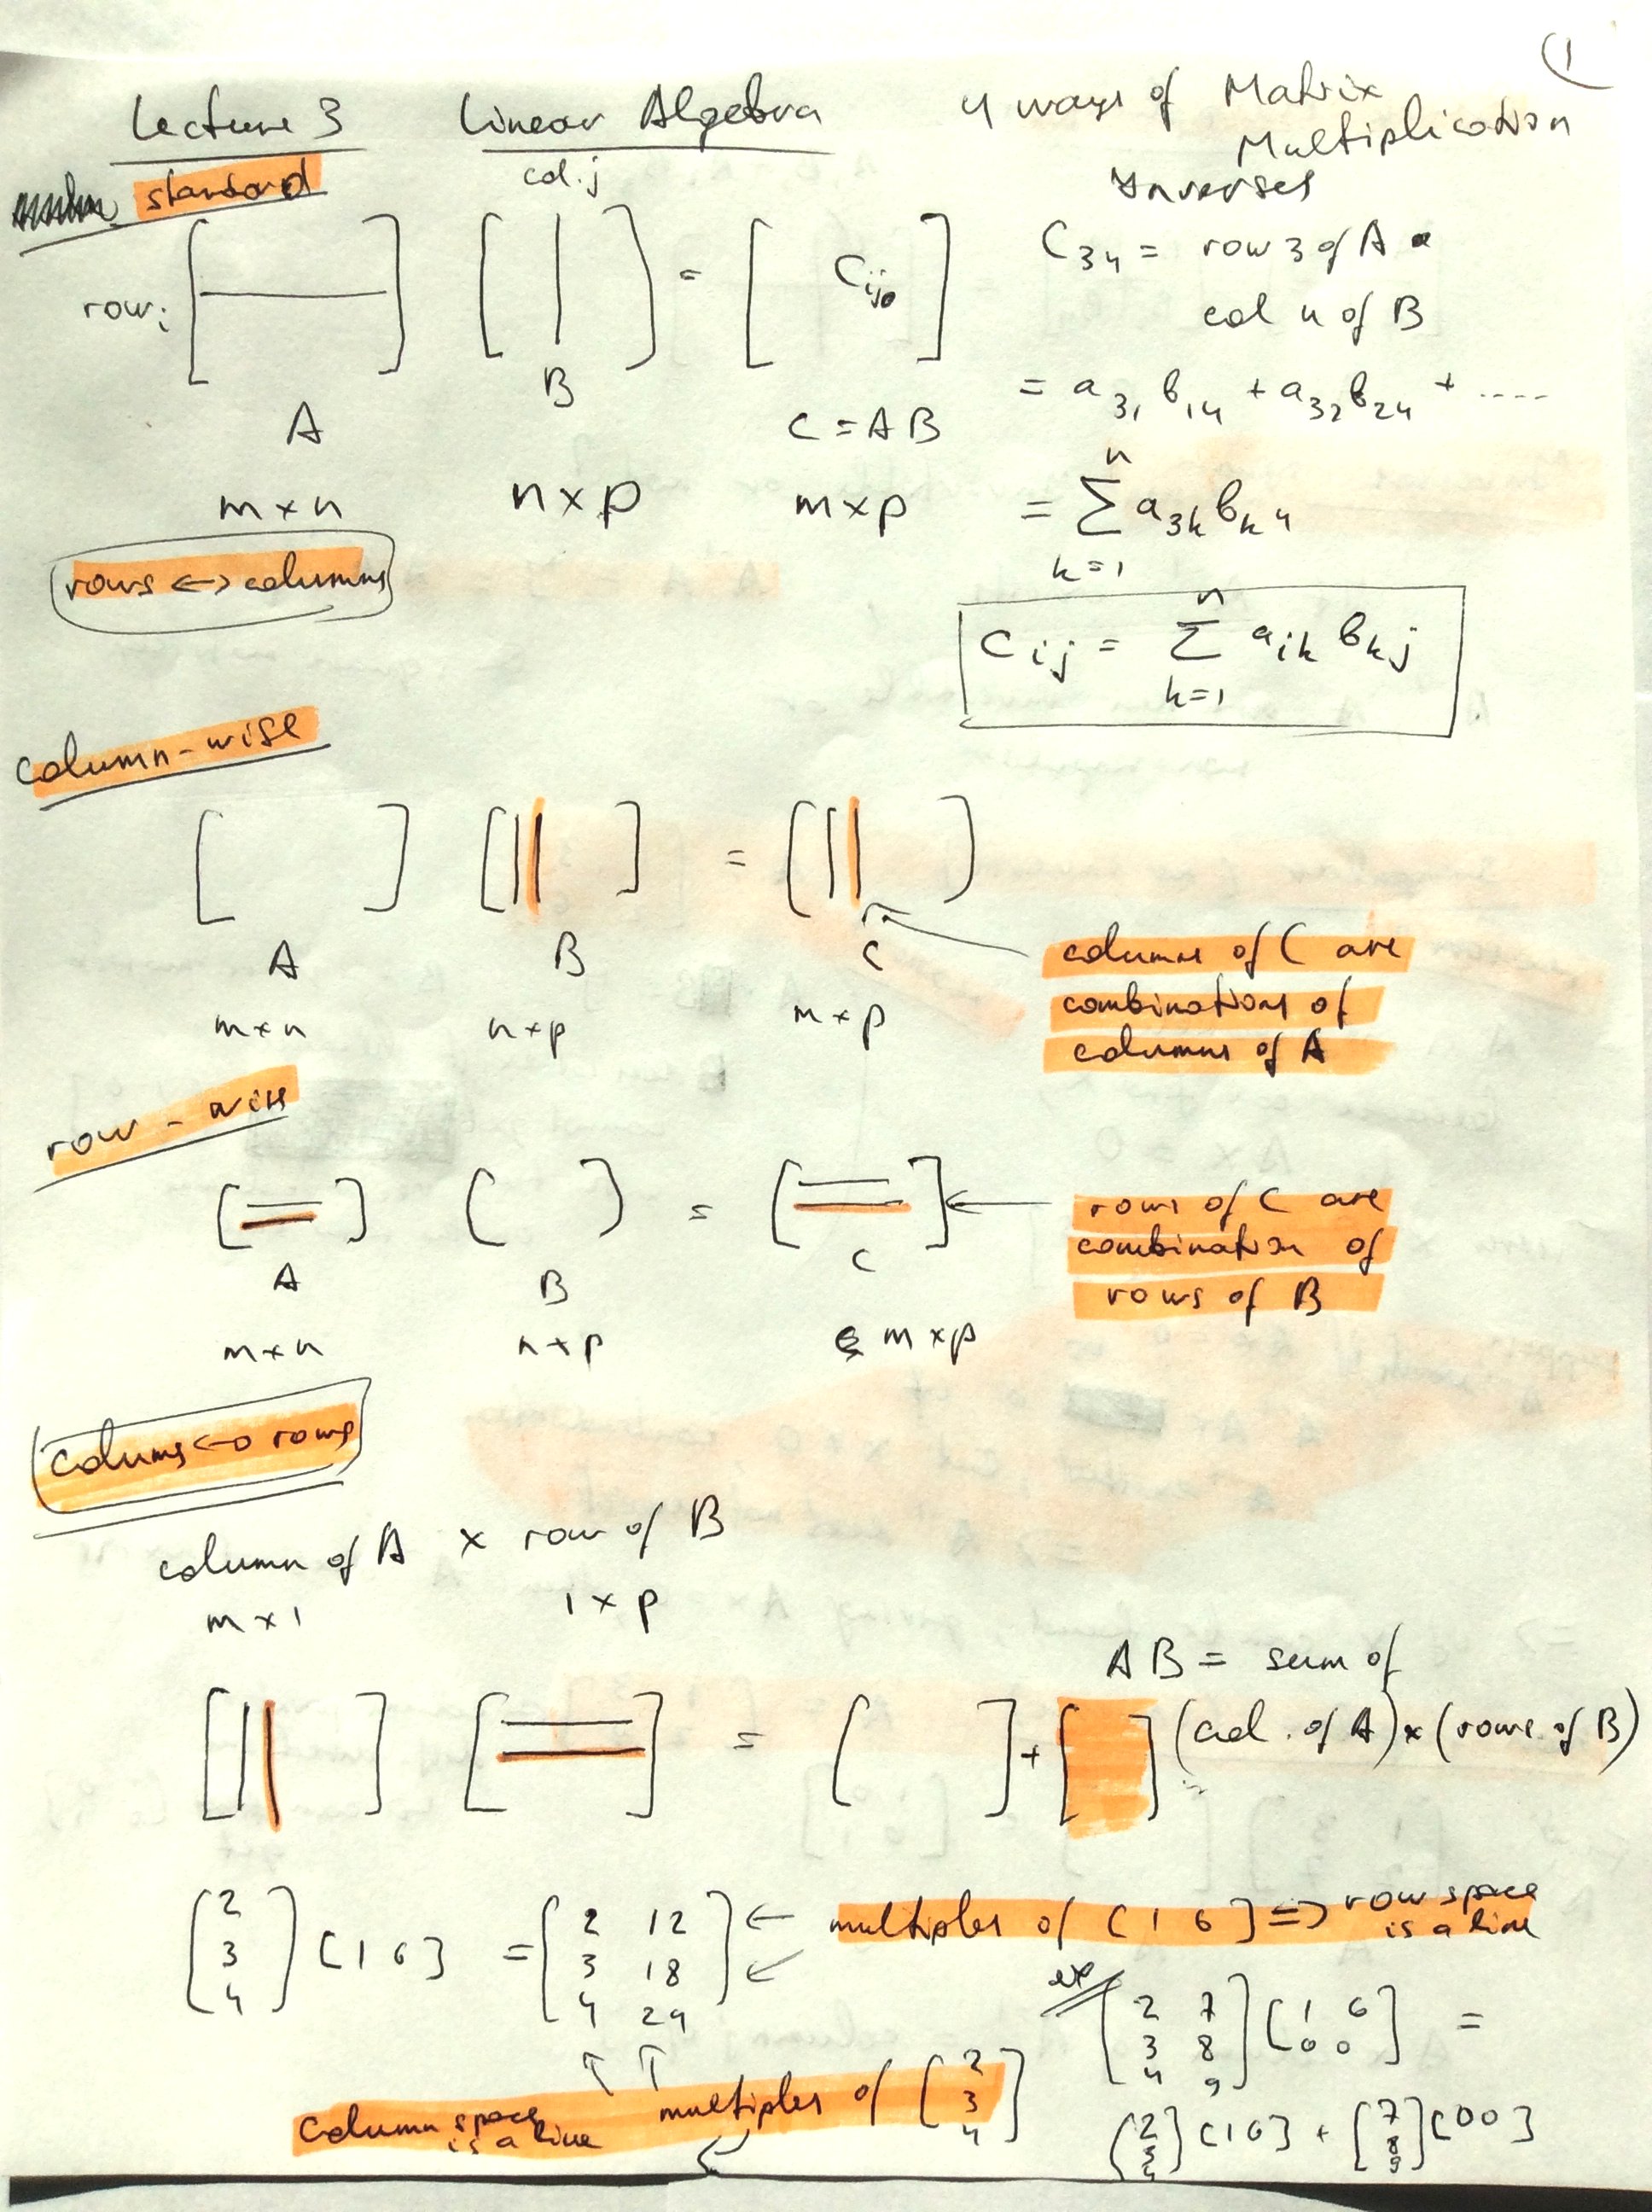 1
Lecture 3 Linear Algebra 4 ways of Matrix
Multiplication
Inverses
standard
col.j
row i [ — ] [ | ] = [ Cij ]
A B C = AB
m×n n×p m×p
C34 = row 3 of A •
col 4 of B
= a31 b14 + a32 b24 + ....
= n Σ k=1 a3k bk4
Cij = n Σ k=1 aik bkj
rows <-> columns
column-wise
[ ] [ || ] = [ || ]
A B C
m×n n×p m×p
columns of C are
combinations of
columns of A
row-wise
[ = ] [ ] = [ = ]
A B C
m×n n×p m×p
rows of C are
combination of
rows of B
colums <-> rows
column of A × row of B
m×1 1×p
AB = sum of
(col. of A) × (rows of B)
[ || ] [ = ] = [ ] + [ ]
[2 3 4] [1 6] = [2 12
3 18
4 24]
← multiples of [1 6] => row space
is a line
column space
is a line
multiples of [2 3 4]
ex
[2 7
3 8
4 9] [1 6
0 0] =
[2 3 4] [1 6] + [7 8 9] [0 0]